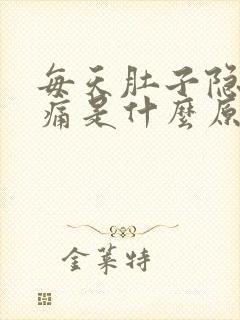 每天肚子隐
痛是什麼原
金莱特